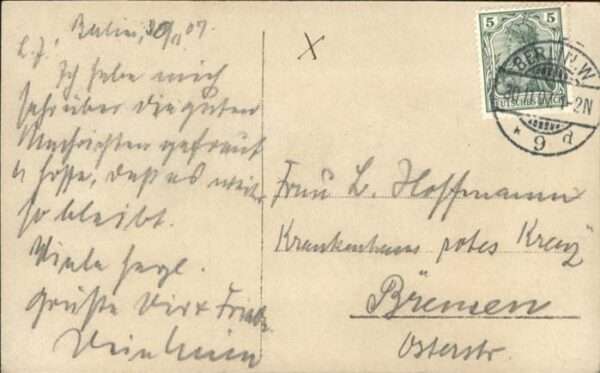 Berlin, 30/11 07.
L. J.
Ich habe mich
sehr über die guten
Nachrichten gefreut
u hoffe, daß es weiter
so bleibt.
Viele herzl.
Grüße Dir u
Frau L. Hoffmann
Krankenhaus rotes Kreuz
Bremen
Osterstr.
5
DEUTSCHES REICH
BERLIN.W
30.11.07.1-2N
9 d
X